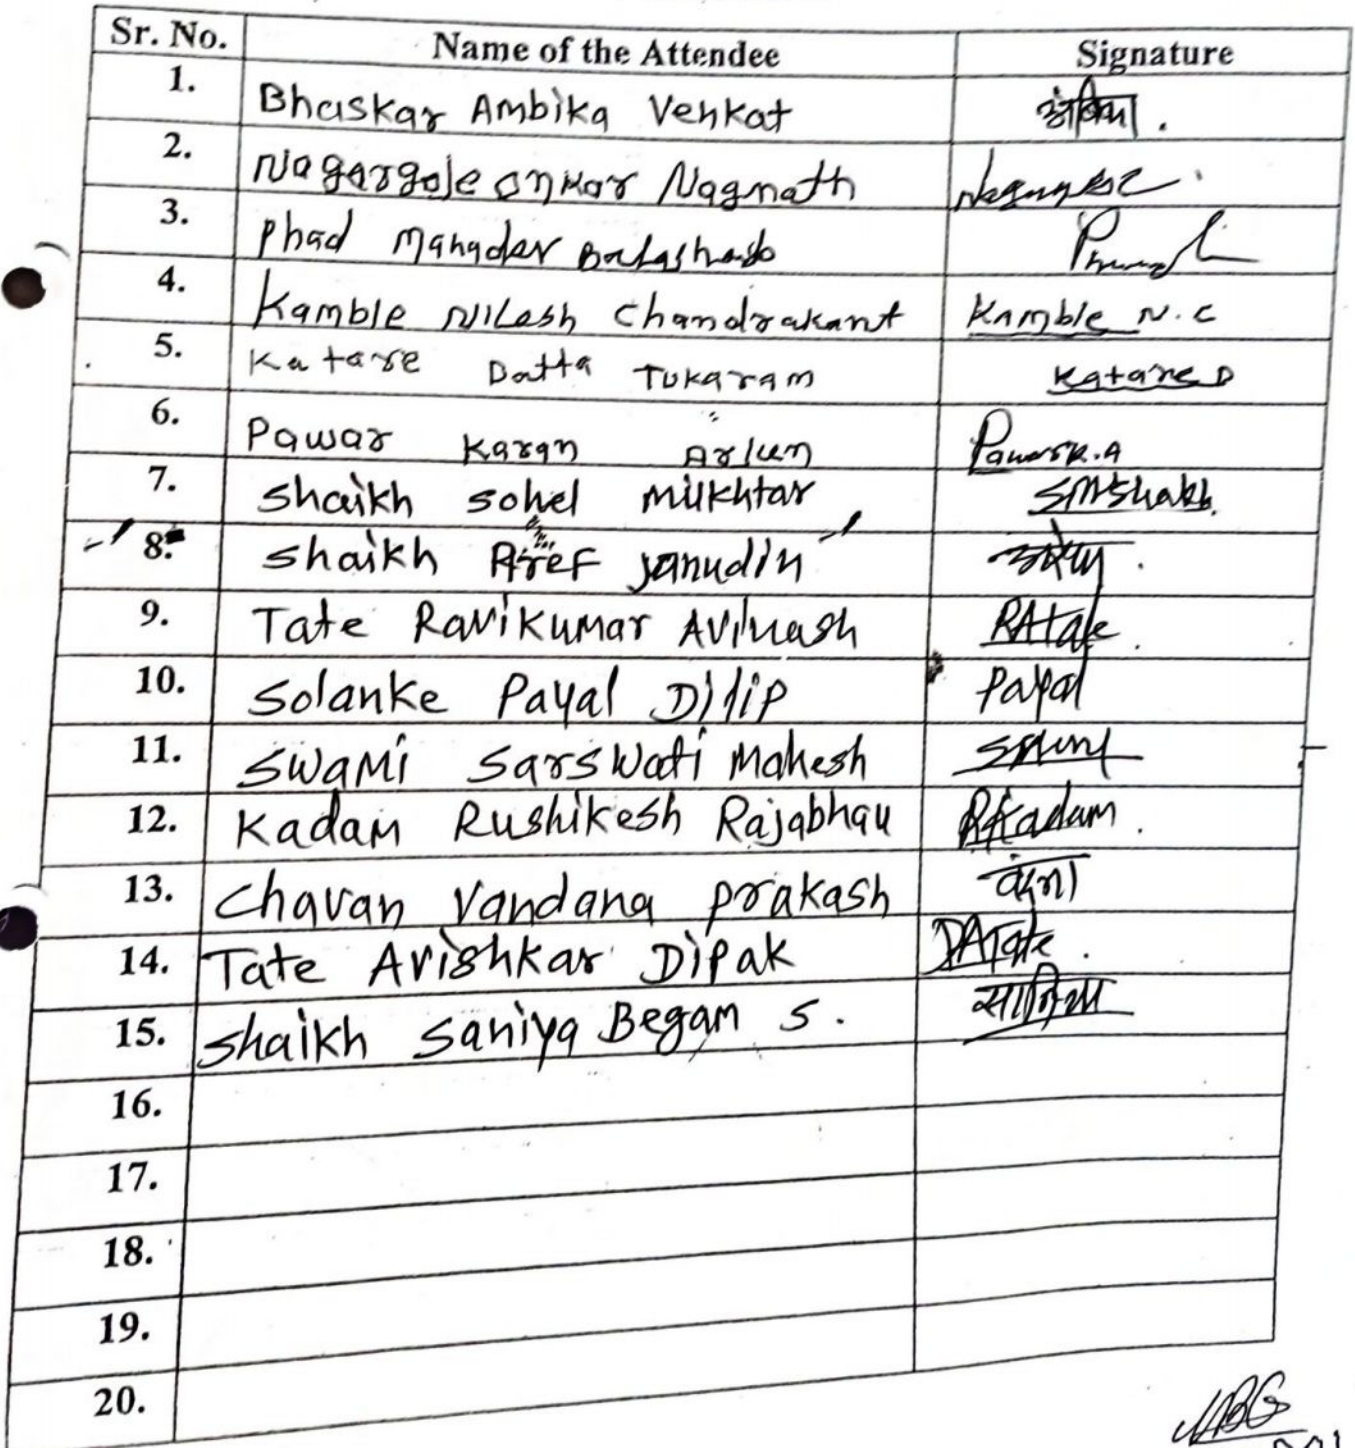 Sr. No. Name of the Attendee Signature
1. Bhaskar Ambika Venkat अंबिका.
2. Nagargoje Onkar Nagnath
3. Phad Mahadev Balashab
4. Kamble Nilesh Chandrakant Kamble N.C
5. Katare Datta Tukaram Katare D
6. Pawar Karan Arjun Pawar K.A
7. Shaikh Sohel Mukhtar SMShaikh.
8. Shaikh Aref Janudin
9. Tate Ravikumar Avinash RATate.
10. Solanke Payal Dilip Payal
11. Swami Sarswati Mahesh
12. Kadam Rushikesh Rajabhau RKadam.
13. Chavan Vandana Prakash वंदना
14. Tate Avishkar Dipak DATate.
15. Shaikh Saniya Begam S. सानिया
16.
17.
18.
19.
20.